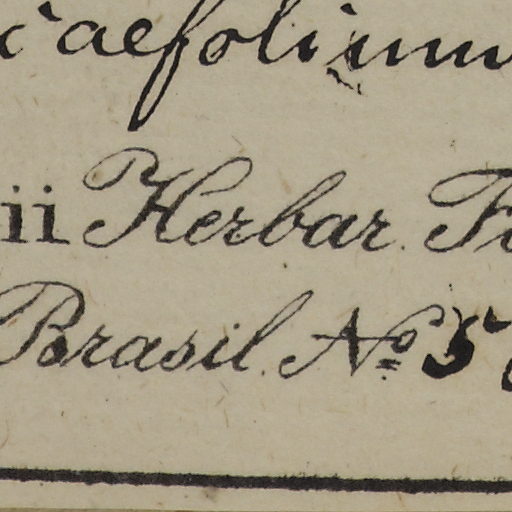 caefolium
ii Herbar. F
Brasil. No 5